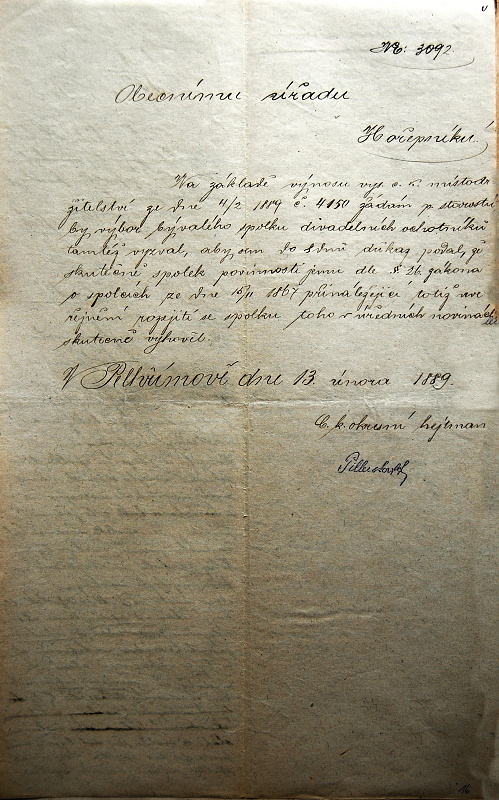 Nr: 3092.
Obecnímu úřadu
Hořepníku
Na základě výnosu vys. c. k. místodr
žitelství ze dne 4/2 1889 č. 4180 žádám p. starostu
by výbor bývalého spolku divadelních ochotníků
tamtéž vyzval, aby sem do 8 dnů důkaz podal, že
skutečně spolek povinnosti jemu dle § 26 zákona
o spolcích ze dne 15/11 1867 přináležející totiž uve
řejnění rozejití se spolku toho v úředních novinách
skutečně vyhověl.
V Pelhřimově dne 13. února 1889.
C. k. okresní hejtman
16